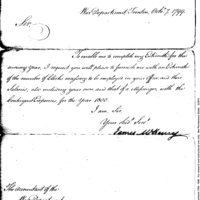 War Department Trenton Octr. 7. 1799.
Sir,
To enable me to complete my Estimate for the
ensuing Year, I request you will please to furnish me with an Estimate
of the number of Clerks necessary to be employed in your Office and their
Salaries, also including your own and that of a Messenger, with the
Contingent Expences for the Year 1800.
I am, Sir
Your Obt. Servt.
James McHenry
The accountant of the
War Department